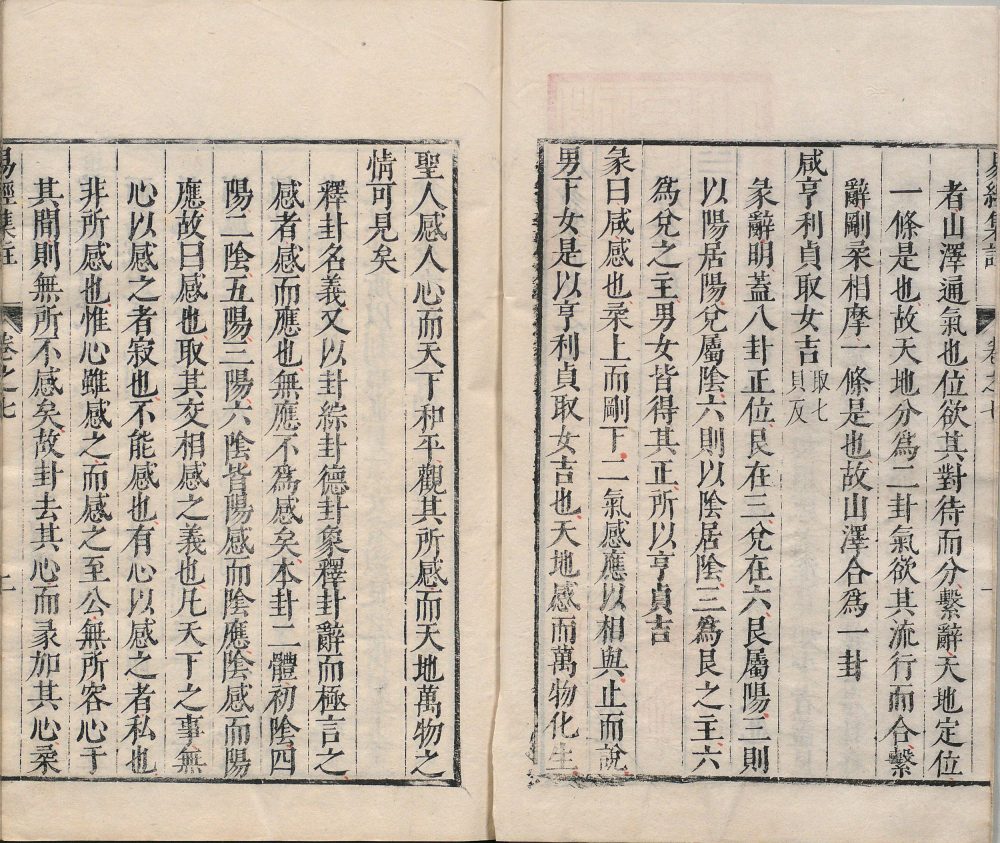 易經集註
卷之七
者山澤通氣也位欲其對待而分繫辭天地定位
一條是也故天地分為二卦氣欲其流行而合繫
辭剛柔相摩一條是也故山澤合為一卦
咸亨利貞取女吉
取七
貝反
彖辭明蓋八卦正位艮在三兌在六艮屬陽三則
以陽居陽兌屬陰六則以陰居陰三為艮之主六
為兌之主男女皆得其正所以亨貞吉
彖曰咸感也柔上而剛下二氣感應以相與止而說
男下女是以亨利貞取女吉也天地感而萬物化生
聖人感人心而天下和平觀其所感而天地萬物之
情可見矣
釋卦名義又以卦綜卦德卦象釋卦辭而極言之
感者感而應也無應不為感矣本卦二體初陰四
陽二陰五陽三陽六陰皆陽感而陰應陰感而陽
應故曰感也取其交相感之義也凡天下之事無
心以感之者寂也不能感也有心以感之者私也
非所感也惟心雖感之而感之至公無所容心于
其間則無所不感矣故卦去其心而彖加其心柔
易經集註
卷之七
二